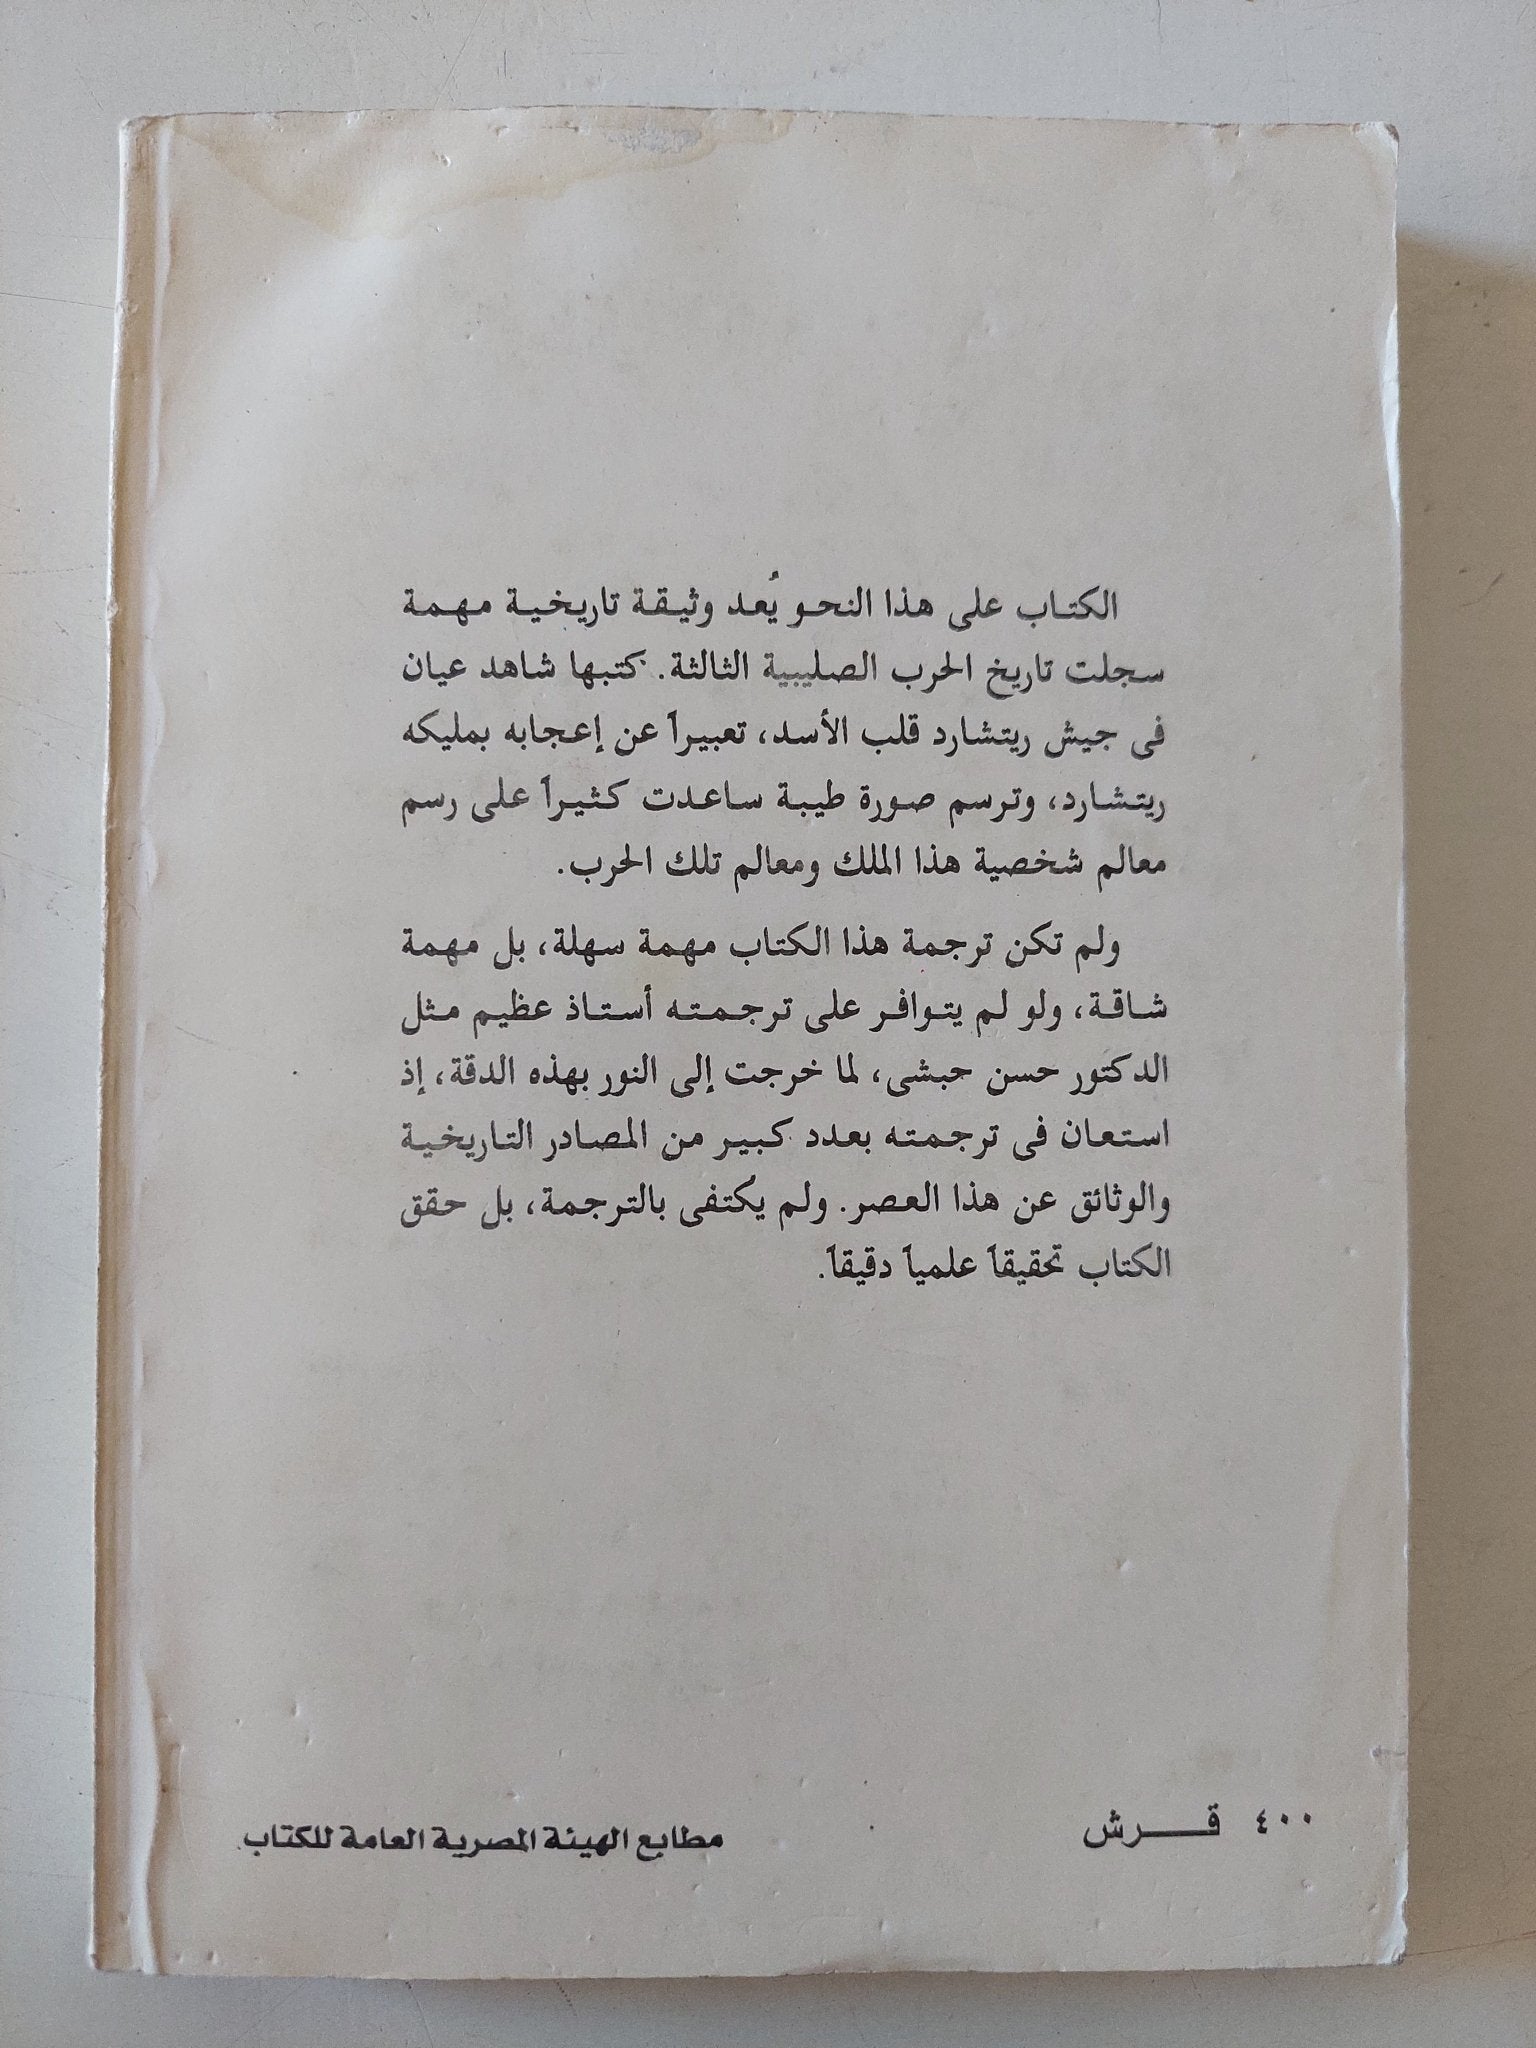 الكتاب على هذا النحو يُعد وثيقة تاريخية مهمة
سجلت تاريخ الحرب الصليبية الثالثة. كتبها شاهد عيان
فى جيش ريتشارد قلب الأسد، تعبيراً عن إعجابه بمليكه
ريتشارد، وترسم صورة طيبة ساعدت كثيراً على رسم
معالم شخصية هذا الملك ومعالم تلك الحرب.
ولم تكن ترجمة هذا الكتاب مهمة سهلة، بل مهمة
شاقة، ولو لم يتوافر على ترجمته أستاذ عظيم مثل
الدكتور حسن حبشى، لما خرجت إلى النور بهذه الدقة، إذ
استعان فى ترجمته بعدد كبير من المصادر التاريخية
والوثائق عن هذا العصر. ولم يكتفى بالترجمة، بل حقق
الكتاب تحقيقاً علمياً دقيقاً.
٤٠٠ قرش
مطابع الهيئة المصرية العامة للكتاب